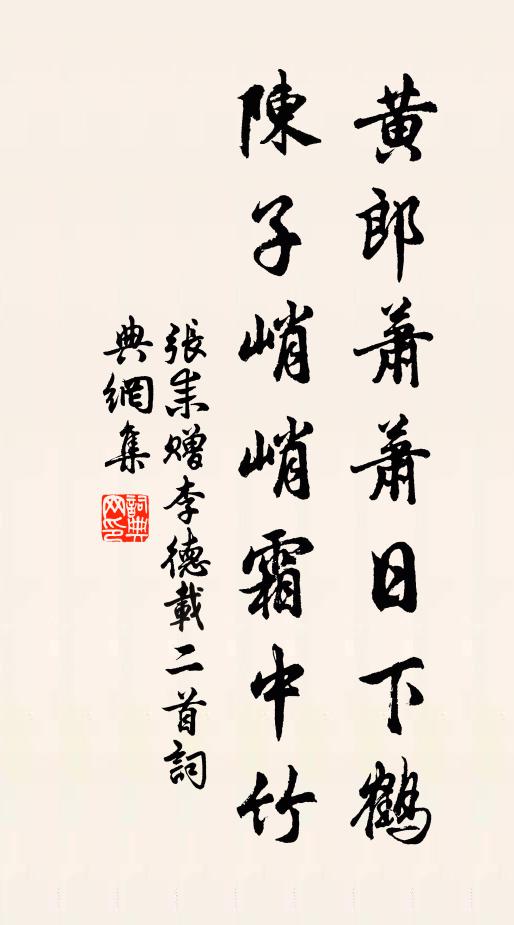 黄郎蕭蕭日下鶴
陳子峭峭霜中竹
張耒贈李德載二首詞
典網集
詞典
网印